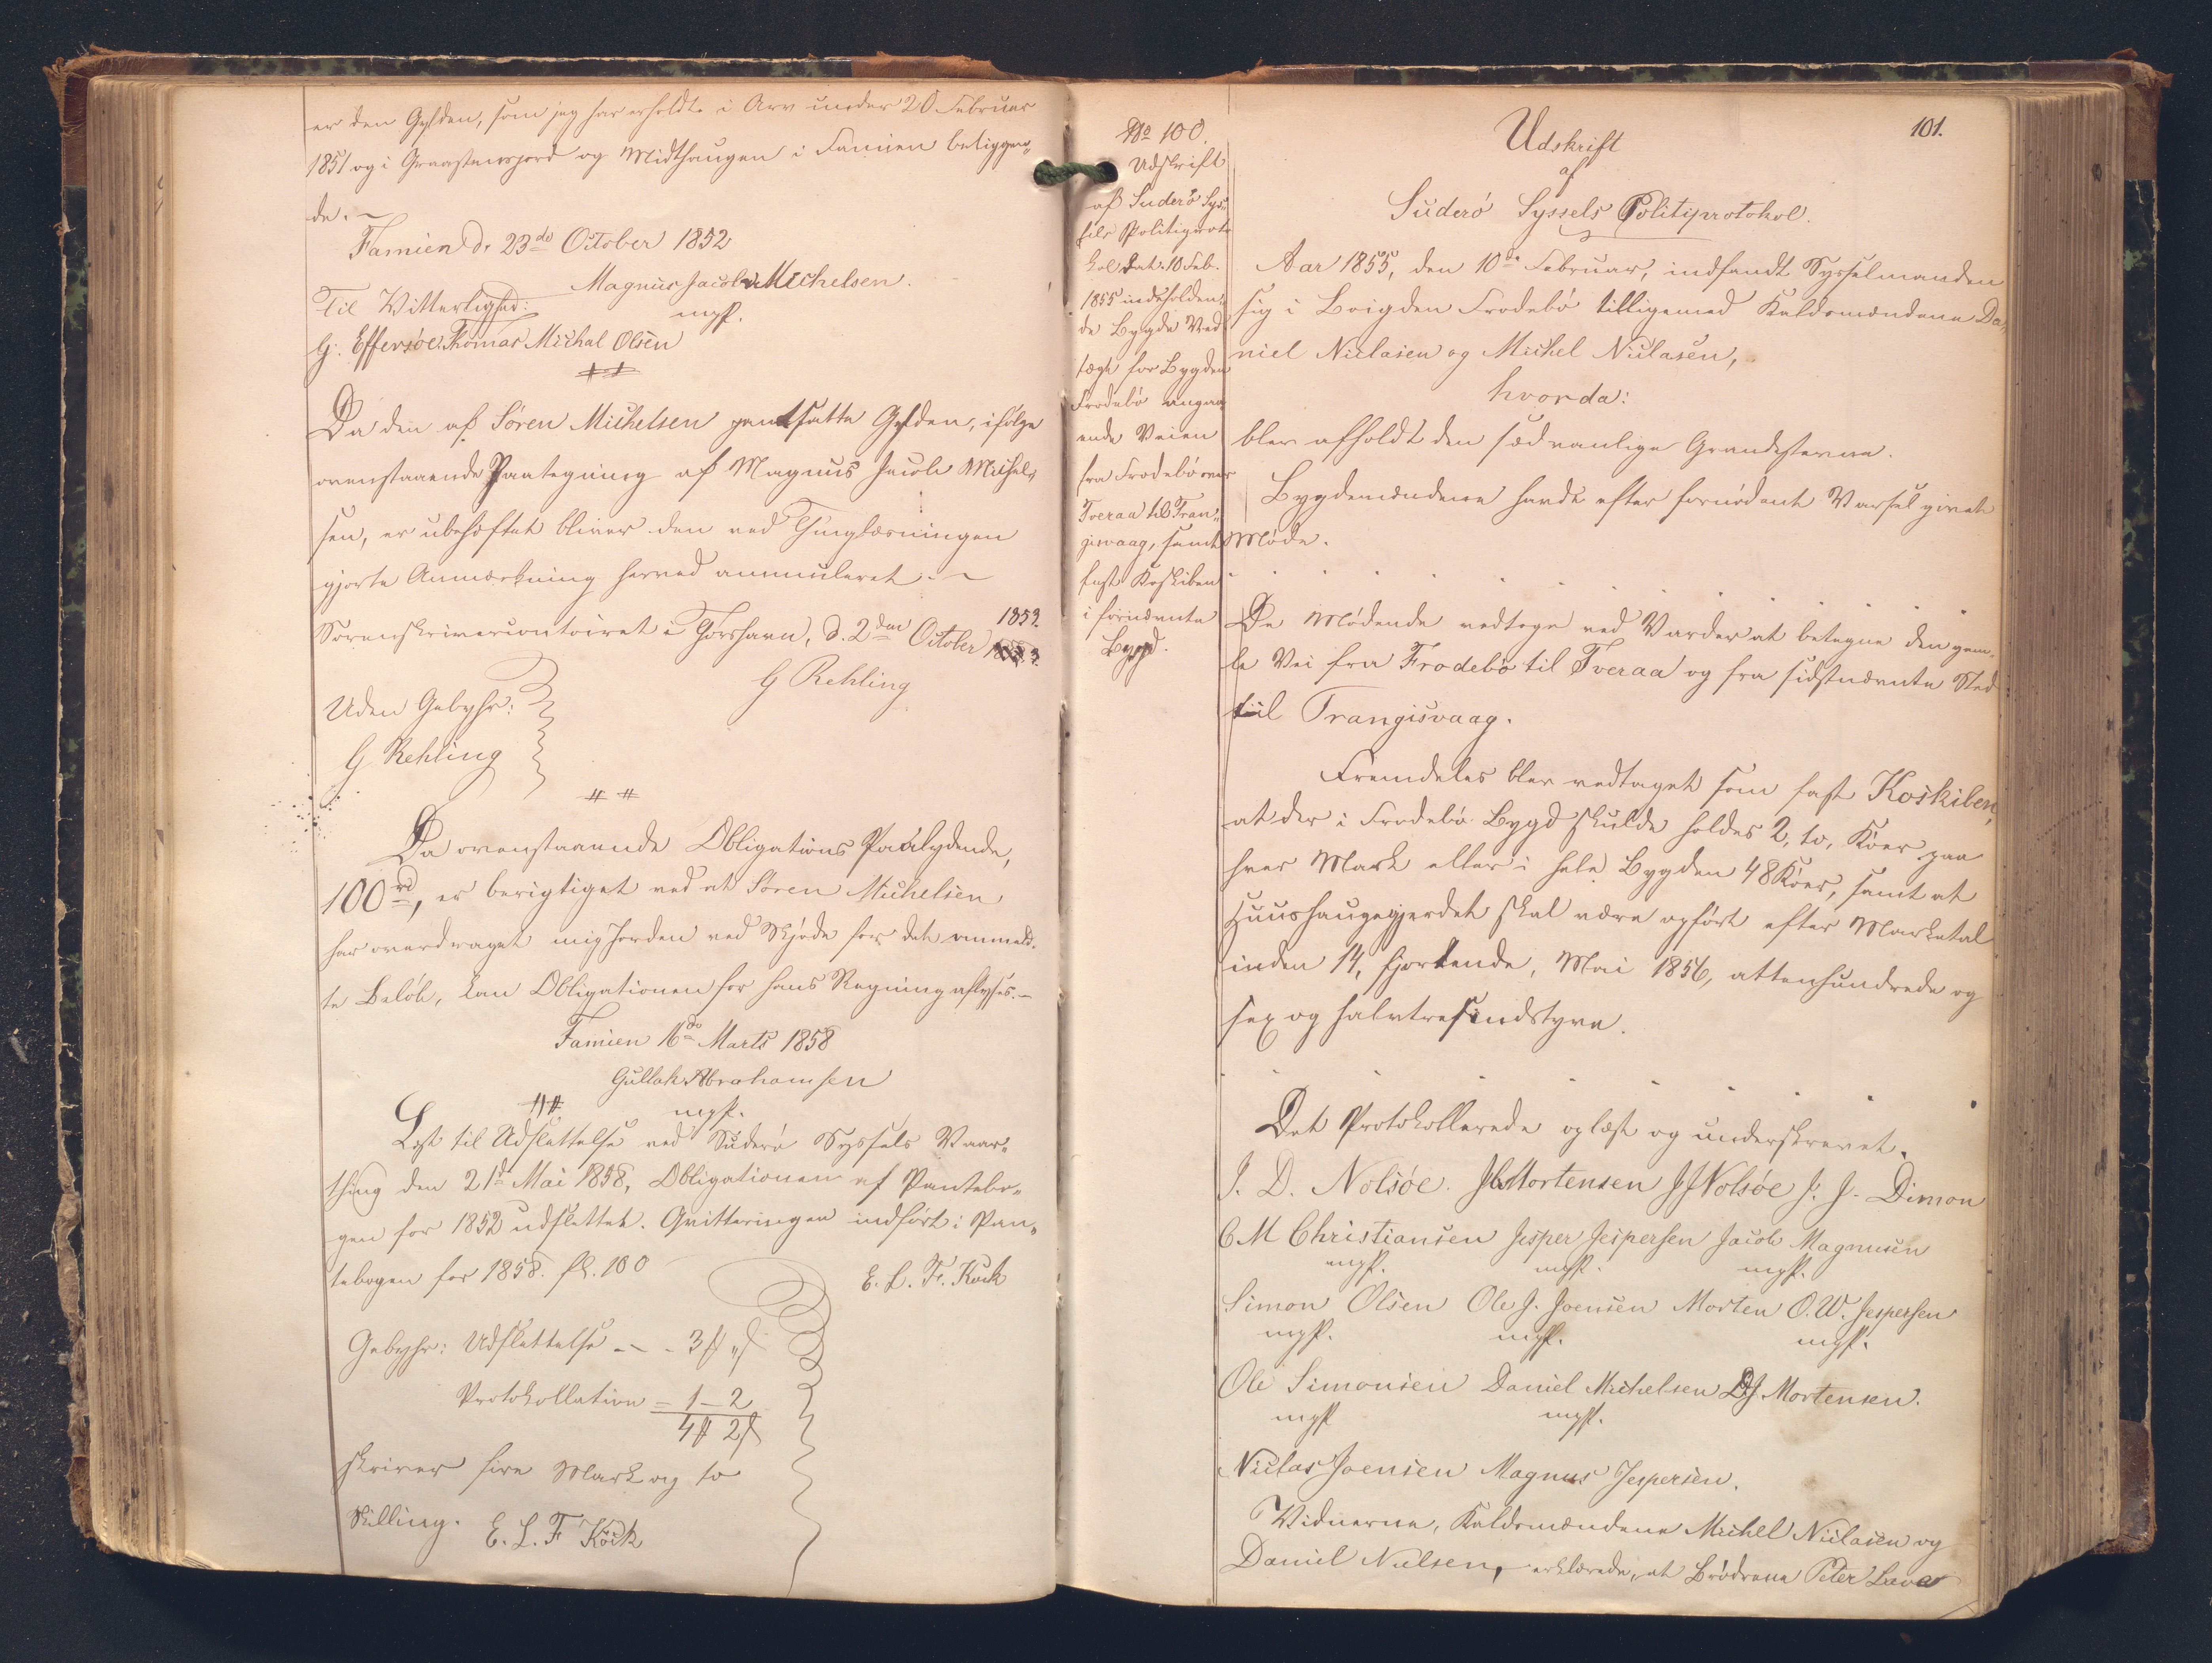 er den Gylden, som jeg har erholdt i Arv under 20 Februar
1851 og i Graastensjord og Midthaugen i Famien beliggen„
de. –
Famien d. 23de October 1852
Magnus Jacob Michelsen.
mpp.
Til Vitterlighed:
G. Effersöe. Thomas Michal Olsen
Da den af Søren Michelsen pantsatte Gylden, ifølge
ovenstaaende Paategning af Magnus Jacob Michel„
sen, er ubehæftet bliver den ved Thinglæsningen
gjorte Anmærkning herved annuleret. –
Sorenskrivercontoiret i Thorshavn, d. 2den October 1853.
G Rehling
Uden Gebyhr:
G Rehling
Da ovenstaaende Obligations Paalydende,
100 rd, er berigtiget ved at Søren Michelsen
har overdraget mig Jorden ved Skjøde for det anmeld„
te Beløb, kan Obligationen for hans Regning aflyses. –
Famien 16de Marts 1858
Gullak Abrahamsen
mpp.
Læst til Udslettelse ved Suderø Syssels Vaar„
thing den 21de Mai 1858, Obligationen af Pantebo„
gen for 1852 udslettet. Qvitteringen indført i Pan„
tebogen for 1858. fl. 100
E. L. Fr. Kock
Gebyhr: Udslettelse - - - 3 ₰ „ ß
Protokollation = 1 – 2
4 ₰ 2 ß
skriver fire Mark og to
Skilling. E. L. F Kock
No 100.
Udskrift
af Suderø Sys„
sels Politiproto
kol dat. 10 Feb.
1855 indeholden„
de Bygde Ved
tægt for Bygden
Frodebø angaa
ende Veien
fra Frodebø over
Tveraa til Tran„
gisvaag, samt
fast Koskiben
i fornævnte
Bygd.
101.
Udskrift
af
Suderö Syssels Politiprotokol.
Aar 1855, den 10de Februar, indfandt Sysselmanden
sig i Bøigden Frodebö tilligemed Kaldsmændene Da„
niel Niclasen og Michel Niclasen,
hvorda:
blev afholdt den sædvanlige Grandestevne.
Bygdemændene havde efter fornødent Varsel givet
Møde.
De Mødende vedtoge ved Varder at betegne den gam„
le Vei fra Frodebø til Tveraa og fra sidstnævnte Sted
til Trangisvaag.
Fremdeles blev vedtaget som fast Koskiben,
at der i Frodebø Bygd skulde holdes 2, to, Köer paa
hver Mark eller i hele Bygden 48 Köer, samt at
Huushaugegjerdet skal være opført efter Marketal
inden 14, fjortende, Mai 1856, attenhundrede og
sex og halvtresindstyve.
Det Protokollerede oplæst og underskrevet.
J. D. Nolsöe. J Mortensen JJ Nolsöe J. J. Dimon
C M Christiansen Jesper Jespersen Jacob Magnusen
mpp. mpp. mpp.
Simon Olsen Ole J. Joensen Morten O. W. Jespersen
mpp. mpp. mpp.
Ole Simonsen Daniel Michelsen D. J. Mortensen.
mpp mpp.
Niclas Joensen Magnus Jespersen.
Vidnerne, Kaldsmændene Michel Niclasen og
Daniel Nielsen, erklærede, at Brødrene Peter Lava